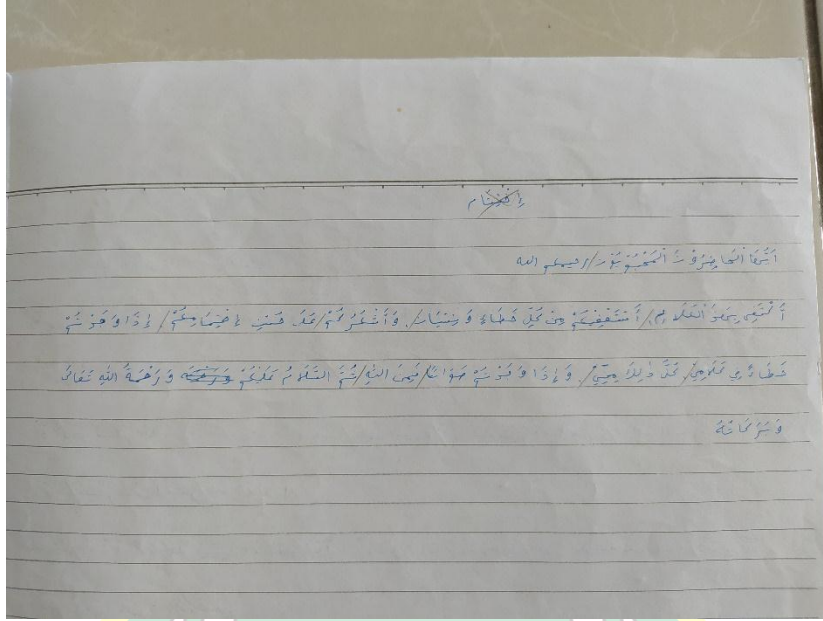 إختتام
أيّها الْحَاضِرُوْنَ الْمَحْبُوْبُوْنَ / رحيمكم الله
أَكْتَفِي بِهٰذَ الْكَلَامِ / أَسْتَعْفِيْكُمْ مِنْ كُلِّ خَطَاءٍ وَنِسْيَان / وَأَشْكُرُكُمْ / عَلَى حُسْنِ إِهْتِمَامِكُمْ / إِذَا وَجَدْتُمْ
خَطَاءً فِي كَلَامِيْ / كُلُّ ذٰلِكَ مِنِّيْ / وَإِذَا وَجَدْتُمْ صَوَابًا / فَمِنَ اللهِ / ثُمَّ السَّلَامُ عَلَيْكُمْ وَرَحْمَةُ اللهِ تَعَالَى
وَبَرَكَاتُهُ